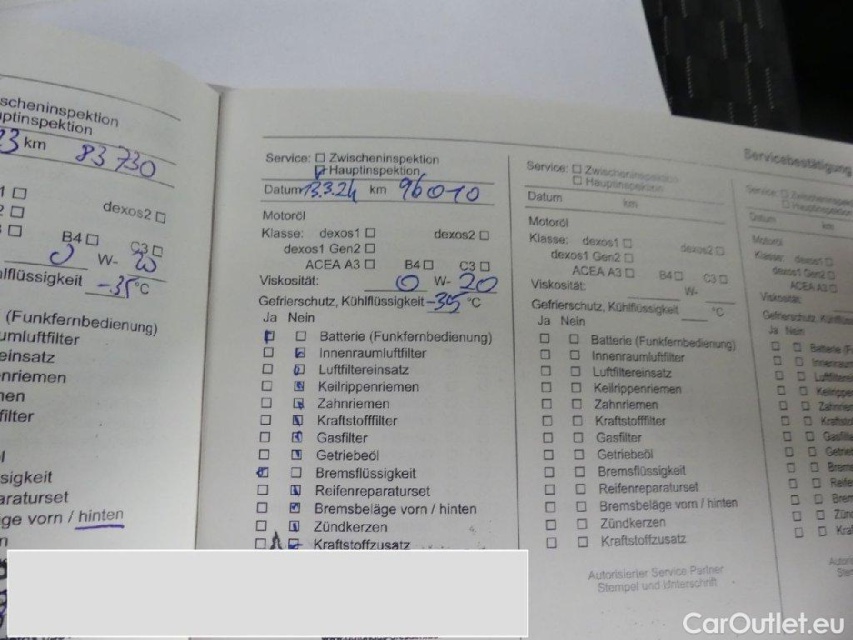 scheninspektion
ptinspektion
3 km 83730
1 ☐
dexos2 ☐
2 ☐
B4 ☐ C3 ☐
0 W- 20
lflüssigkeit -35 °C
(Funkfernbedienung)
umluftfilter
einsatz
nriemen
men
filter
sigkeit
araturset
ge vorn / hinten
Service: ☐ Zwischeninspektion
☑ Hauptinspektion
Datum 13.3.24 km 96010
Motoröl
Klasse: dexos1 ☐ dexos2 ☐
dexos1 Gen2 ☐
ACEA A3 ☐ B4 ☐ C3 ☐
Viskosität: 0 W- 20
Gefrierschutz, Kühlflüssigkeit -35 °C
Ja Nein
☑ ☐ Batterie (Funkfernbedienung)
☐ ☑ Innenraumluftfilter
☐ ☑ Luftfiltereinsatz
☐ ☑ Keilrippenriemen
☐ ☑ Zahnriemen
☐ ☑ Kraftstofffilter
☐ ☑ Gasfilter
☐ ☑ Getriebeöl
☑ ☐ Bremsflüssigkeit
☐ ☑ Reifenreparaturset
☐ ☑ Bremsbeläge vorn / hinten
☐ ☑ Zündkerzen
☐ ☑ Kraftstoffzusatz
Servicebestätigung
Service: ☐ Zwischeninspektion
☐ Hauptinspektion
Datum km
Motoröl
Klasse: dexos1 ☐ dexos2 ☐
dexos1 Gen2 ☐
ACEA A3 ☐ B4 ☐ C3 ☐
Viskosität: W-
Gefrierschutz, Kühlflüssigkeit °C
Ja Nein
☐ ☐ Batterie (Funkfernbedienung)
☐ ☐ Innenraumluftfilter
☐ ☐ Luftfiltereinsatz
☐ ☐ Keilrippenriemen
☐ ☐ Zahnriemen
☐ ☐ Kraftstofffilter
☐ ☐ Gasfilter
☐ ☐ Getriebeöl
☐ ☐ Bremsflüssigkeit
☐ ☐ Reifenreparaturset
☐ ☐ Bremsbeläge vorn / hinten
☐ ☐ Zündkerzen
☐ ☐ Kraftstoffzusatz
Autorisierter Service Partner
Stempel und Unterschrift
Service: ☐
Datum
Motoröl
Klasse: dexos1 ☐
dexos1 Gen2 ☐
ACEA A3 ☐
Viskosität:
Ja Nein
CarOutlet.eu